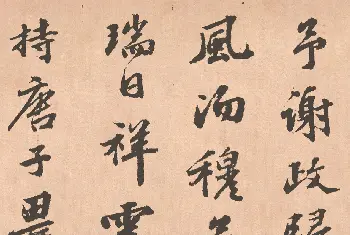 予謝政歸
風沕穆
瑞日祥雲
持唐子畏